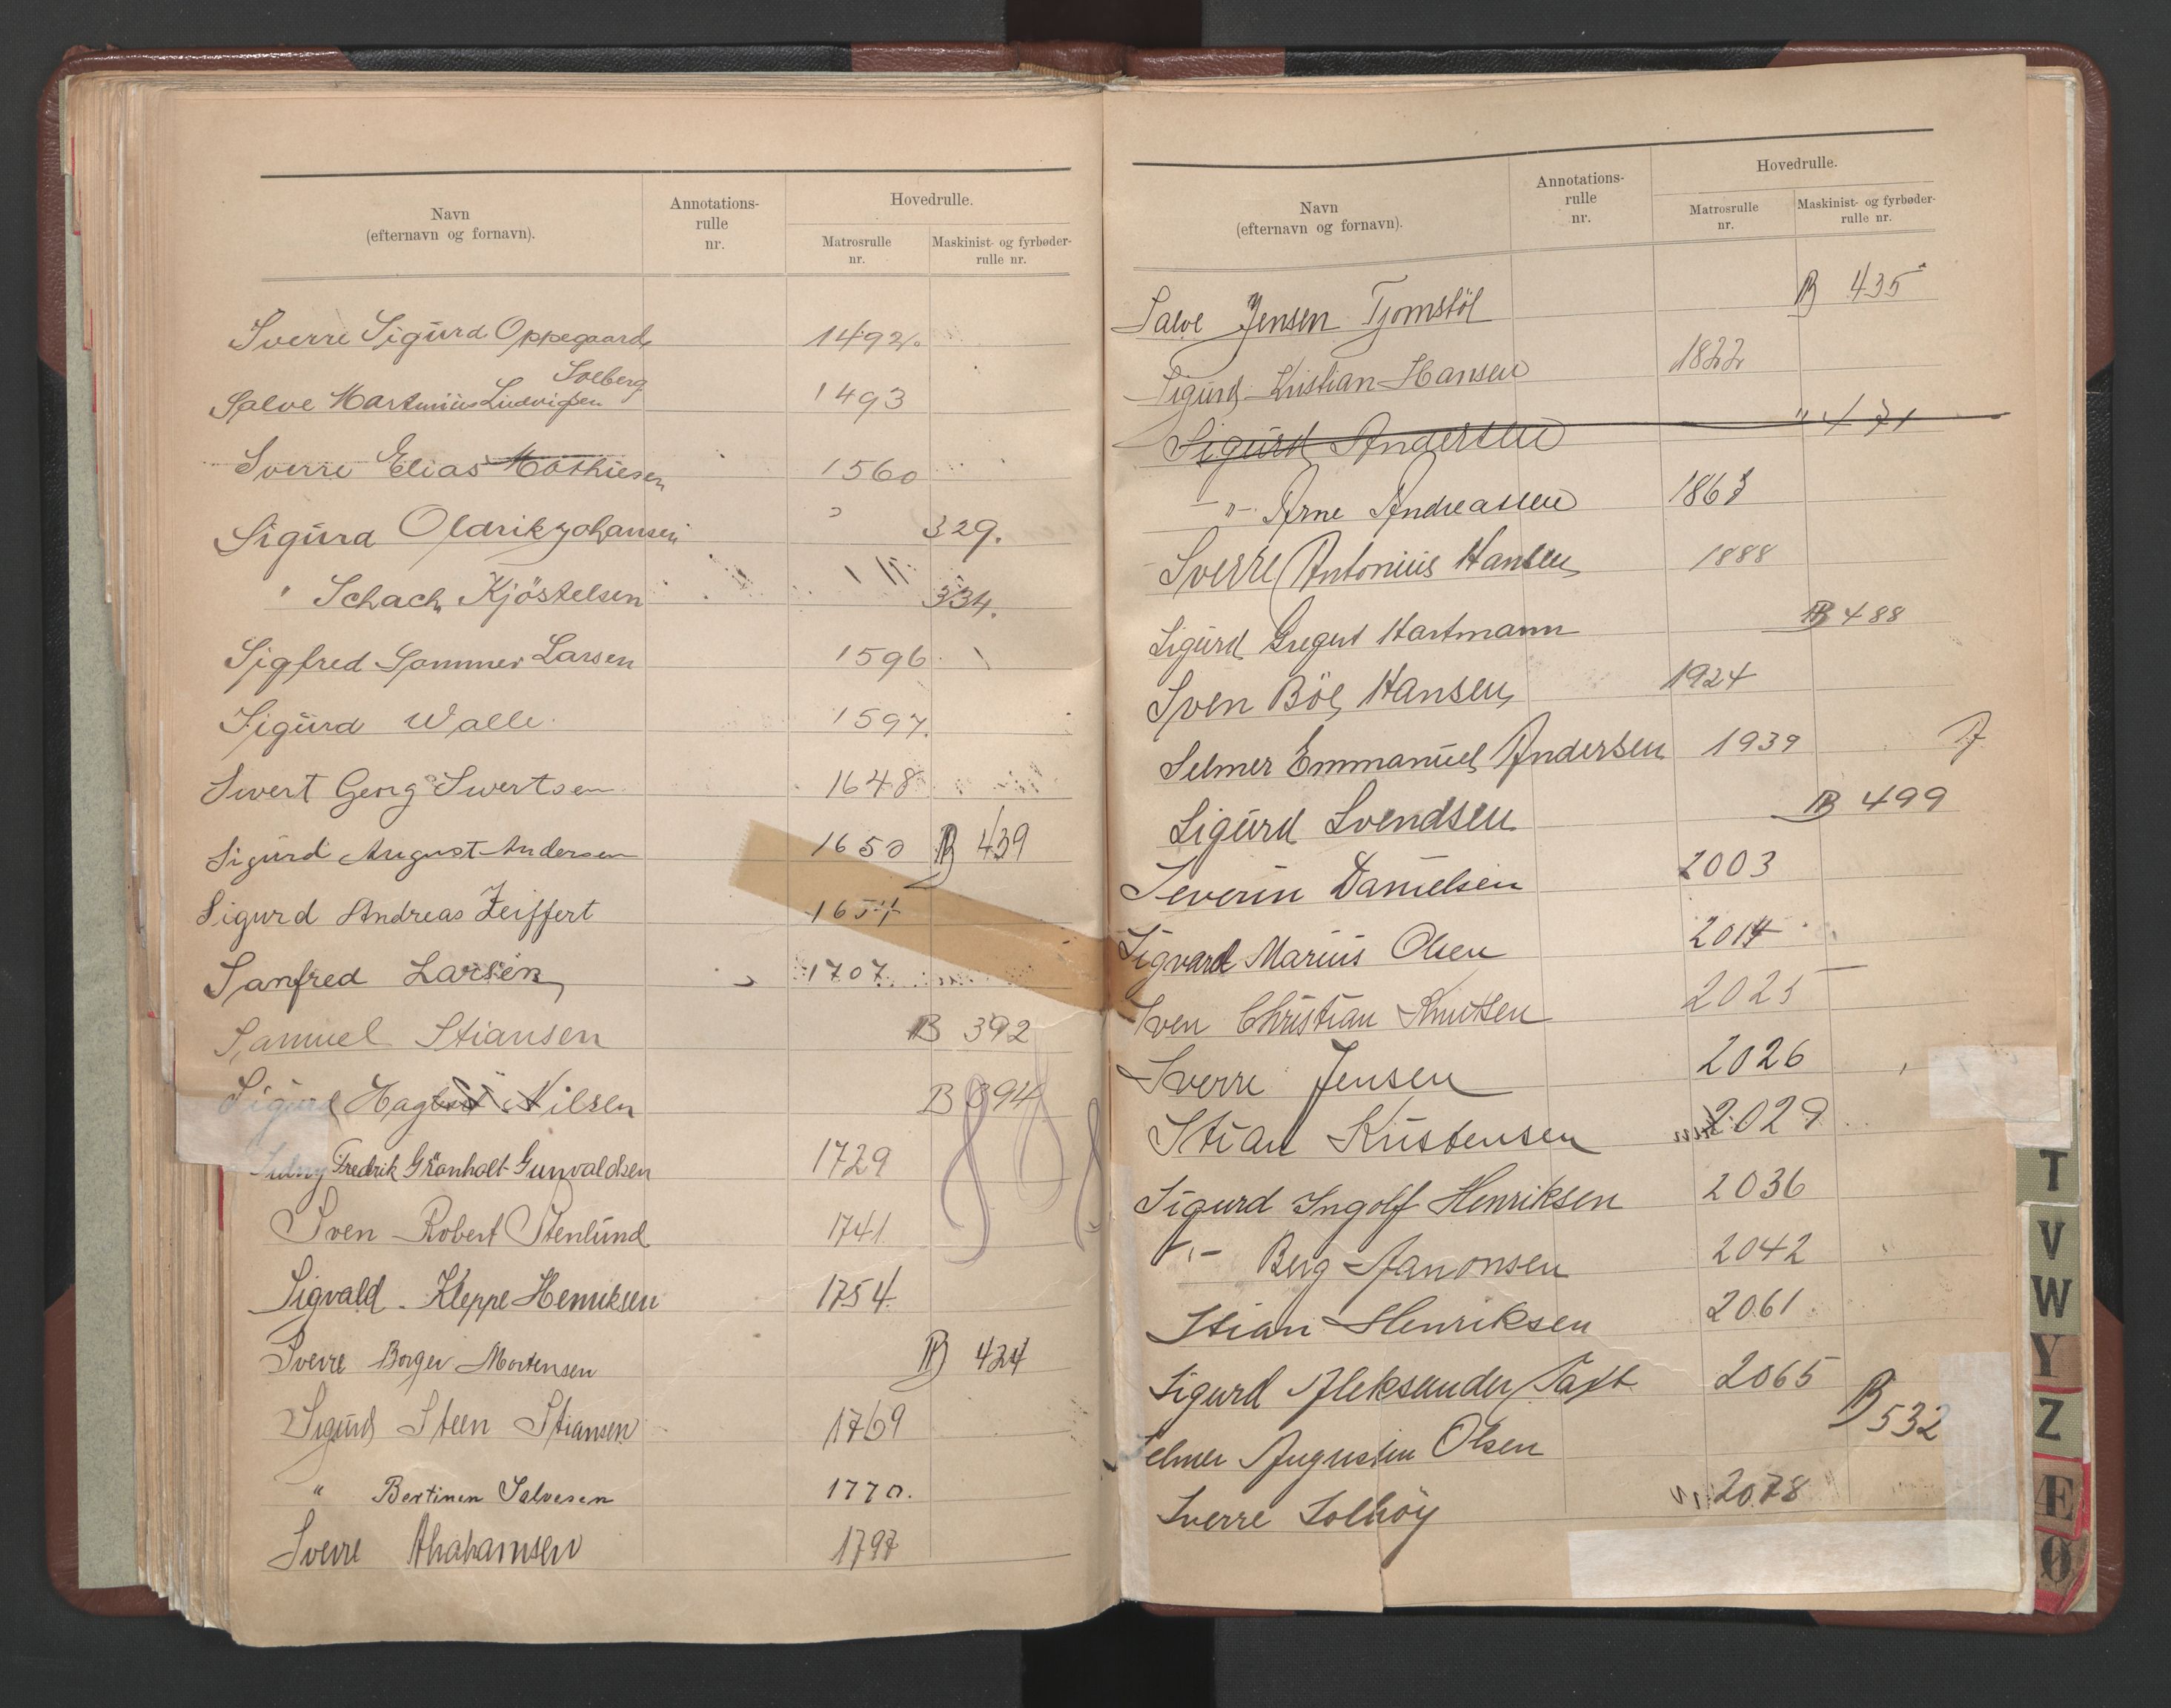 Navn
(efternavn og fornavn).
Annotations-
rulle
nr.
Hovedrulle.
Matrosrulle
nr.
Maskinist- og fyrbøder-
rulle nr.
Sverre Sigurd Oppegaard 1492.
Solberg
Salve Martinius Ludvigsen 1493
Sverre Elias Mathiesen 1560
Sigurd Oldrik Johansen " 329.
" Schach Kjöstelsen 334.
Sigfred Sommer Larsen 1596
Sigurd Walle 1597.
Sivert Georg Sivertsen 1648
Sigurd August Andersen 1650 B 439
Sigurd Andreas Zeiffert 1654
Sanfred Larsen 1707
Samuel Stiansen B 392
Sigurd Nilsen B 394
Fredrik Grönholt Gunvaldsen 1729
Sven Robert Stenlund 1741
Sigvald Kleppe Henriksen 1754
Sverre Borger Mortensen B 424
Sigurd Steen Stiansen 1769
" Bertinen Salvesen 1770.
Sverre Abrahamsen 1797
Navn
(efternavn og fornavn).
Annotations-
rulle
nr.
Hovedrulle.
Matrosrulle
nr.
Maskinist- og fyrbøder-
rulle nr.
Salve Jensen Tjomstöl B 435
Sigurd Kristian Hansen 1822
Sigurd Andersen " 471
-"- Arne Andreassen 1863
Sverre Antonius Hansen 1888
Sigurd Hartmann B 488
Sven Böe Hansen 1924
Selmer Emmanuel Andersen 1939
Sigurd Svendsen B 499
Severin Danielsen 2003
Sigvard Marius Olsen 2014
Sven Christian Knutsen 2025
Sverre Jensen 2026
Stian Kristensen 2029
Sigurd Ingolf Henriksen 2036
-"- Berg Aanonsen 2042
Stian Henriksen 2061
Sigurd Aleksander Taxt 2065
Selmer Augustin Olsen B 532
Sverre Solhöy 2078
T
V
W
Y
Z
Æ
Ø